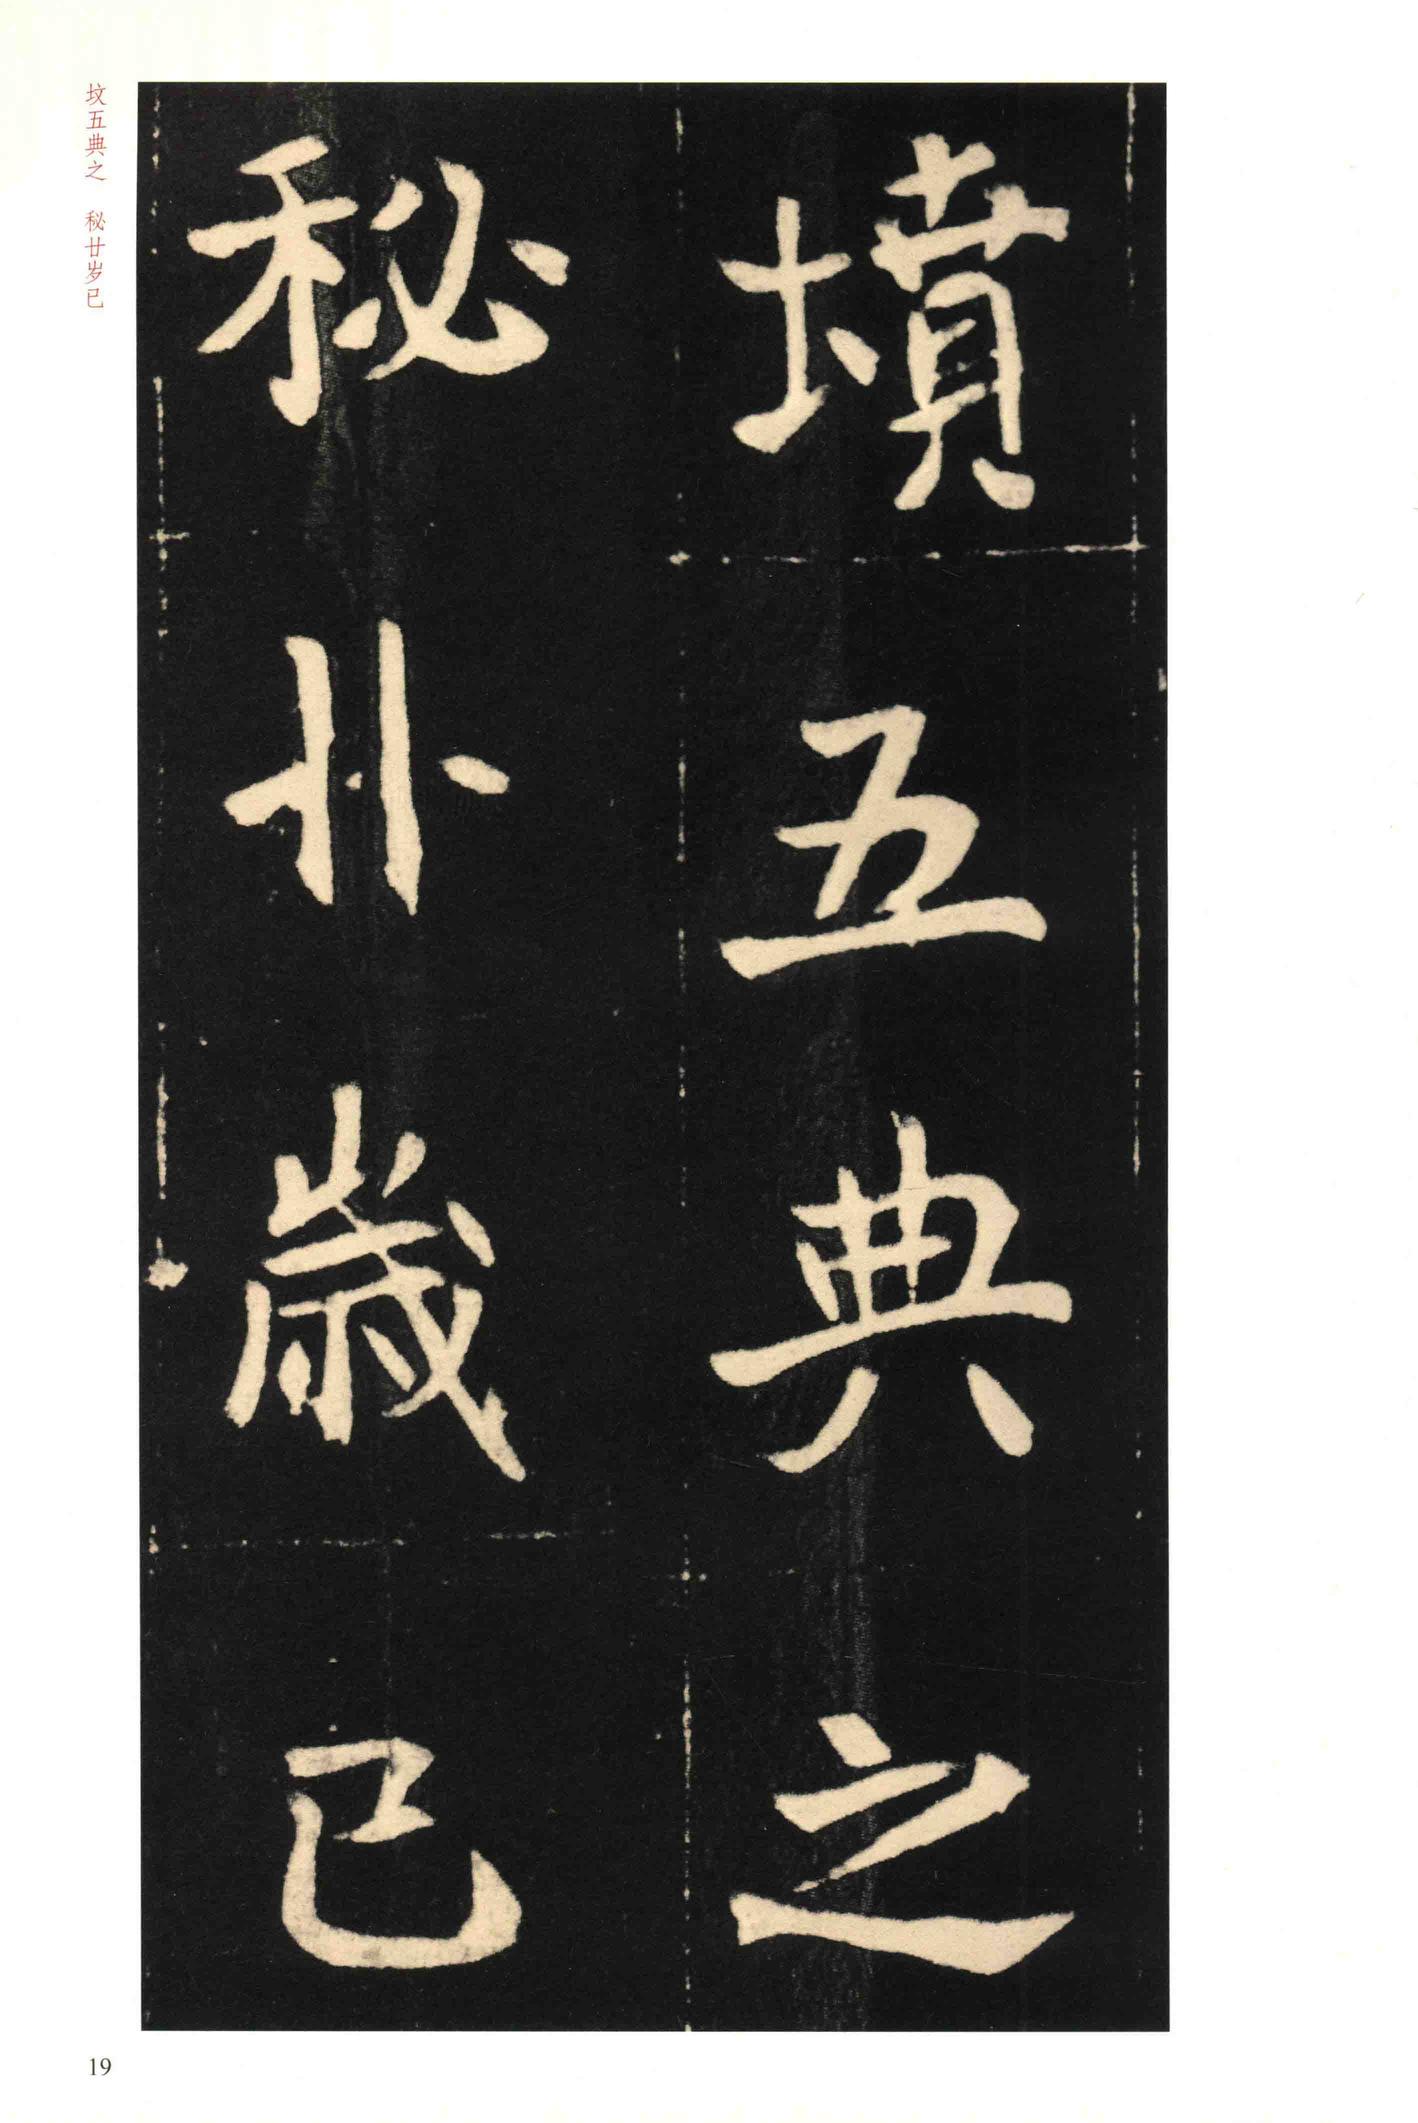 墳五典之
秘廿歲已
坟五典之 秘廿岁已
19